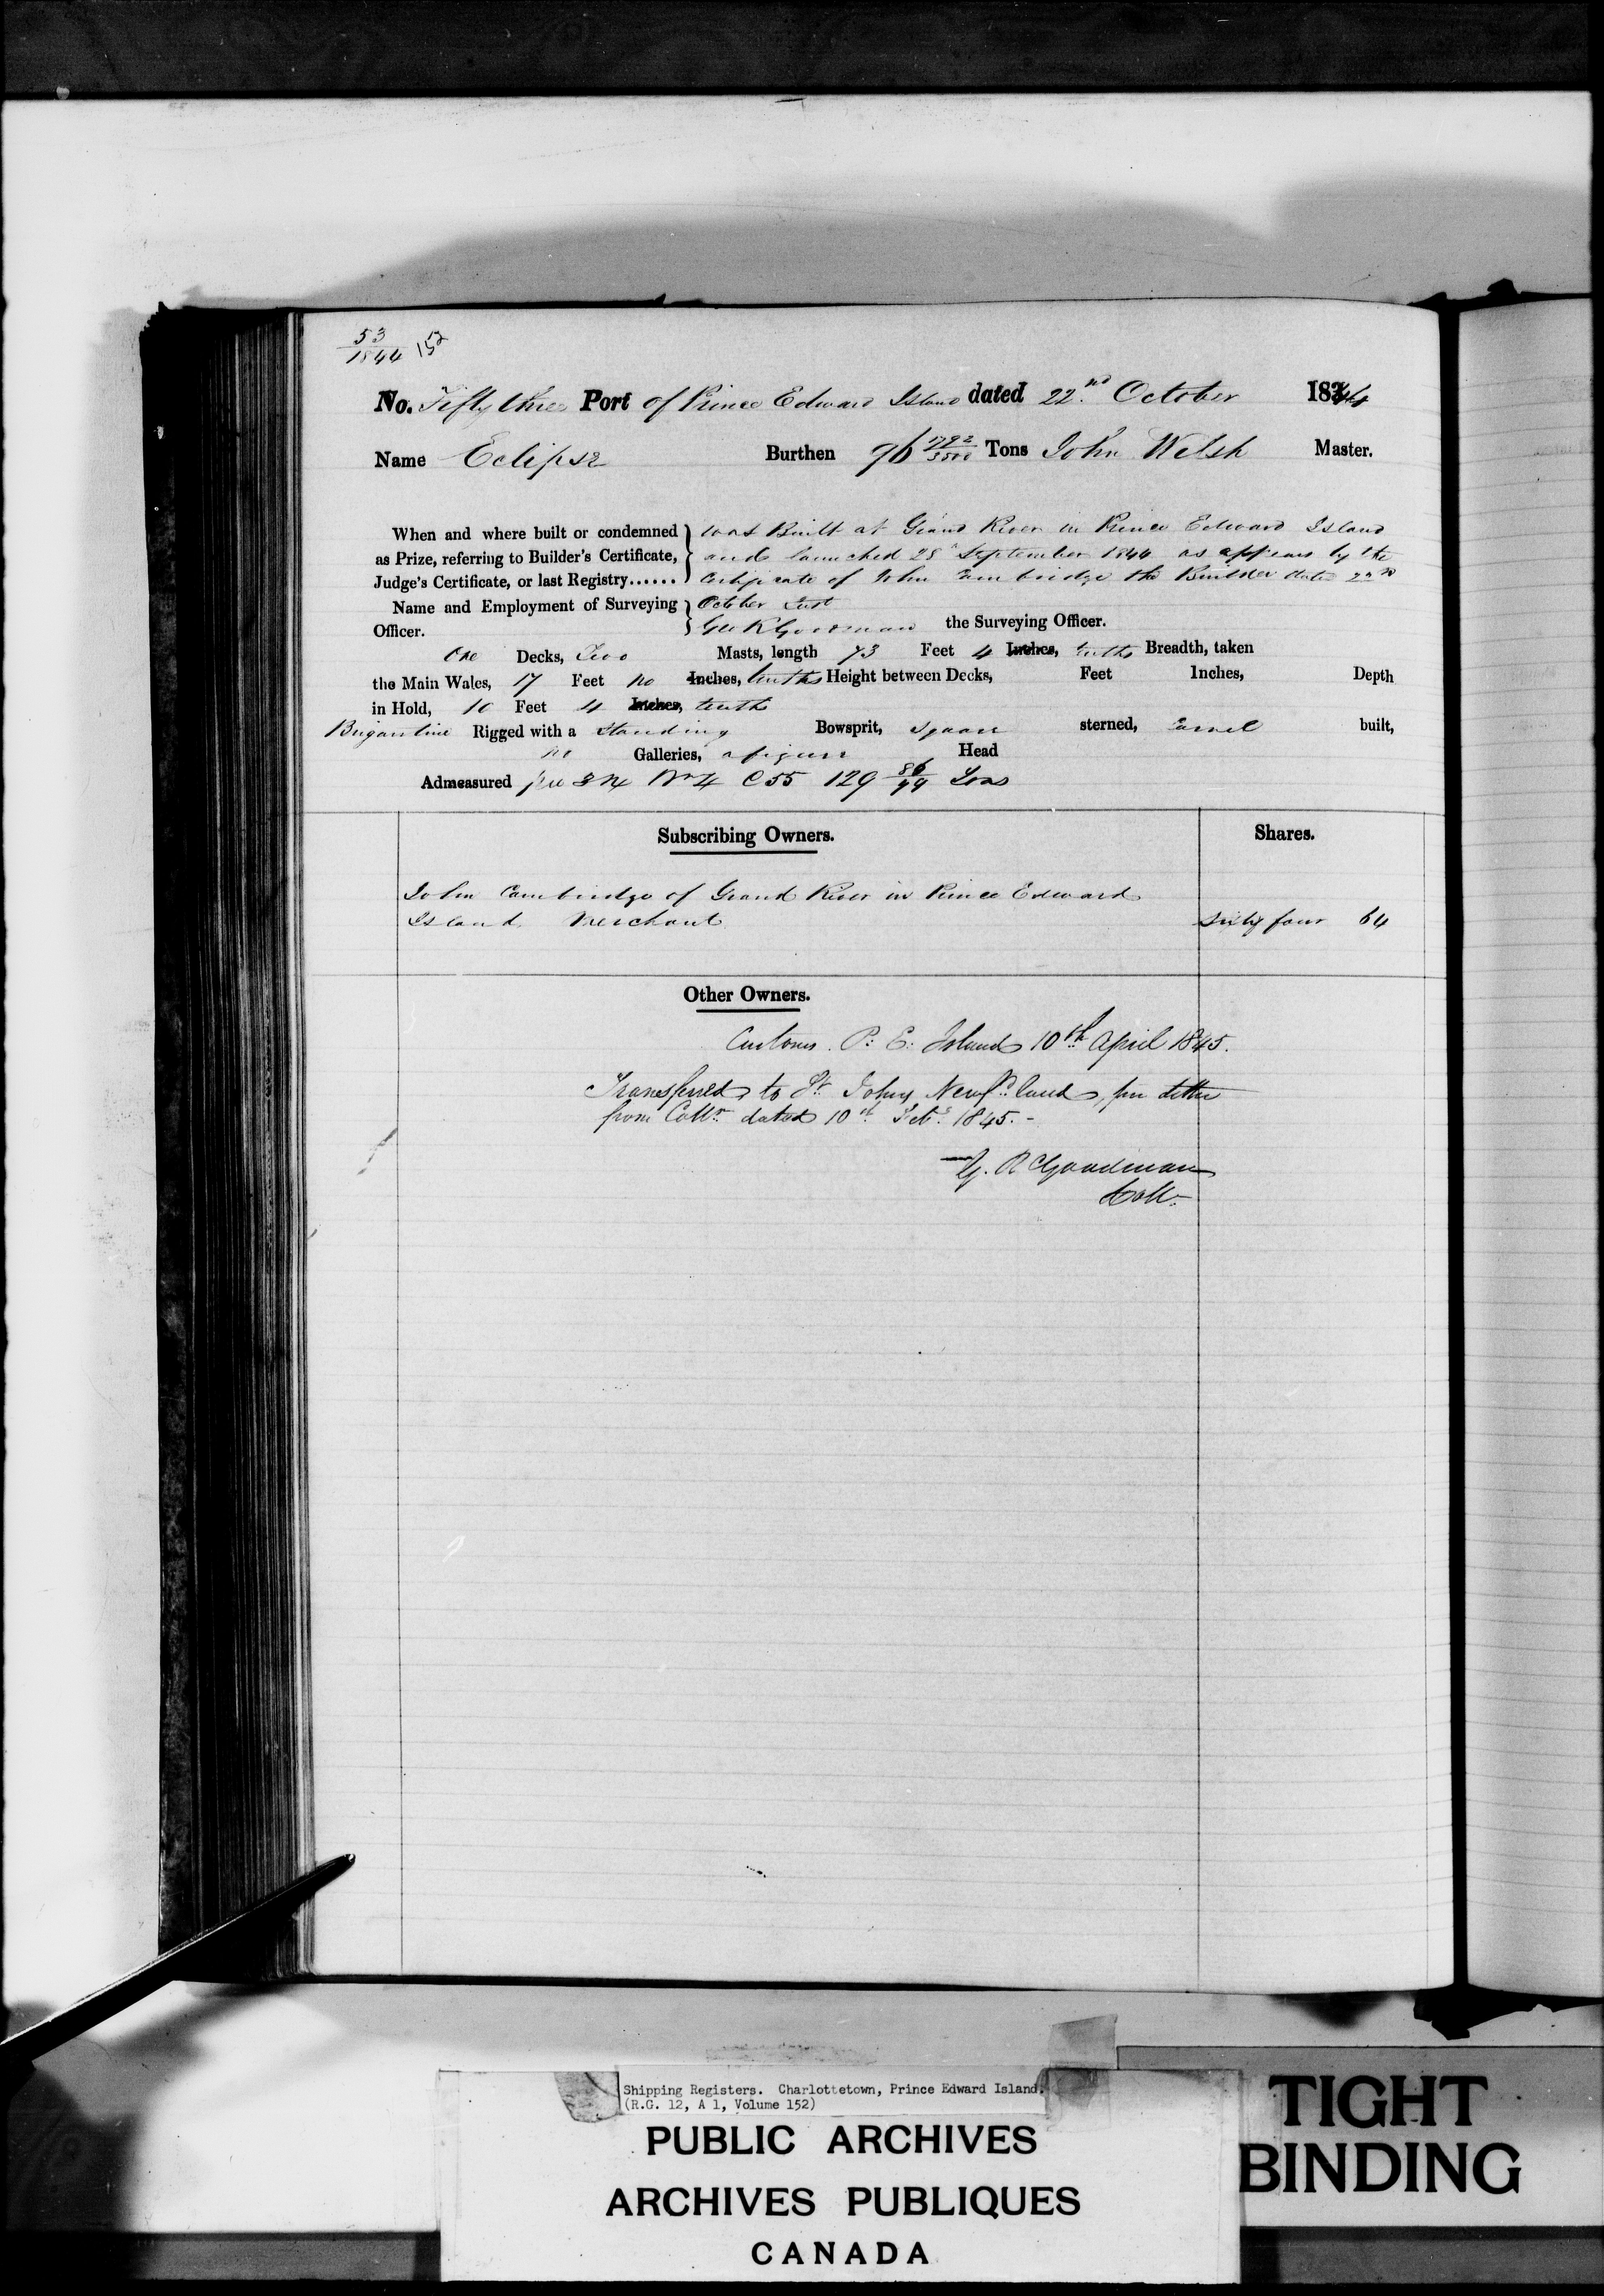 53
1844 152
No. Fifty three Port of Prince Edward Island dated 22nd October 1844
Name Eclipse Burthen 96 1792/3500 Tons John Welsh Master.
When and where built or condemned as Prize, referring to Builder's Certificate, Judge's Certificate, or last Registry......
was Built at Grand River in Prince Edward Island
and launched 28th September 1844 as appears by the
Certificate of John Cambridge the Builder dated 22nd
Name and Employment of Surveying Officer.
October Inst
Geo R Goodman the Surveying Officer.
One Decks, Two Masts, length 73 Feet 4 Inches, tenths Breadth, taken
the Main Wales, 17 Feet no Inches, tenths Height between Decks, Feet Inches, Depth
in Hold, 10 Feet 4 Inches, tenths
Brigantine Rigged with a Standing Bowsprit, Square sterned, Carvel built,
no Galleries, a figure Head
Admeasured C 55 129 86/94 Tons
Subscribing Owners. Shares.
John Cambridge of Grand River in Prince Edward
Island Merchant Sixty four 64
Other Owners.
Customs P. E. Island 10th April 1845.
Transferred to St. Johns Newfd land, per letter
from Collr dated 10th Feby 1845.-
G. R Goodman
Collr
Shipping Registers. Charlottetown, Prince Edward Island.
(R.G. 12, A 1, Volume 152)
PUBLIC ARCHIVES
ARCHIVES PUBLIQUES
CANADA
TIGHT
BINDING